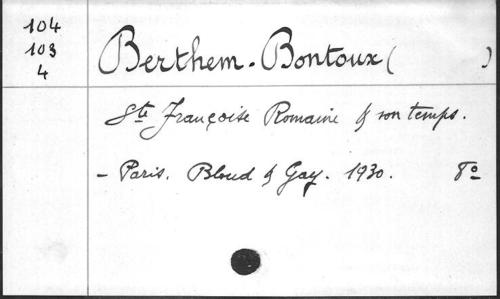 104
103
4
Berthem-Bontoux ( )
Ste Françoise Romaine & son temps.
– Paris. Bloud & Gay. 1930. 8º